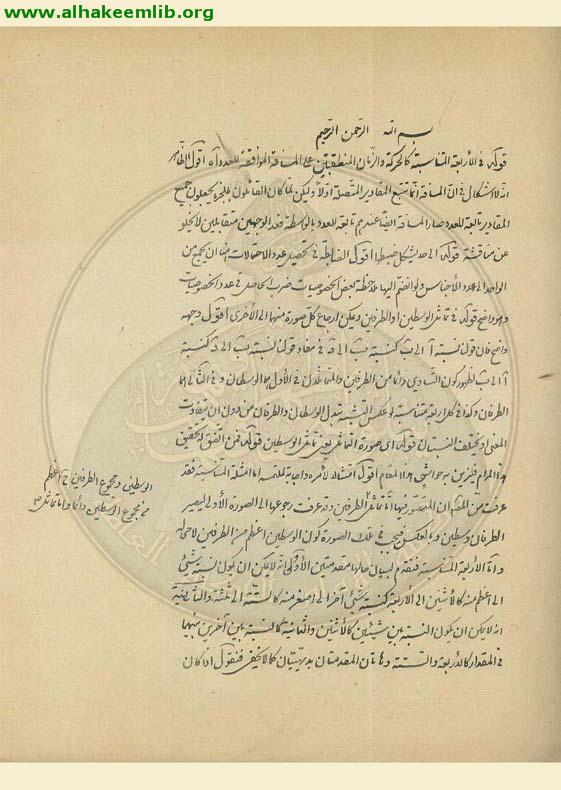 www.alhakeemlib.org
بسم الله الرحمن الرحيم
قوله في الأربعة المتناسبة كالحركة والزمان المنطبقتين على المسافة الموافقة للعدد اه اقول الظاهر
انه لا اشكال في ان المسافة انما تتبع المقادير المتصلة اولا ولكن لما كان القائلون بالجزء يجعلون جميع
المقادير تابعة للعدد صار المسافة ايضا عندهم تابعة للعدد بالواسطة فعد الوجهين متقابلين لا يخلو
عن مناقشة قوله الى حد يشكل ضبطها اقول الضابطة في تحصيل عدد الاحتمالات ان يجمع من
الواحد الى عدد الأجناس ولو انضم اليها ملاحظة بعض الخصوصيات ضرب الحاصل في عدد الخصوصيات
وهو واضح قوله في تماثل الوسطين او الطرفين ويمكن ارجاع كل صورة منهما الى الأخرى اقول وجهه
واضح فان قولنا نسبة آ الى ب كنسبة ب الى د في مفاد قولنا نسبة ب الى د كنسبة
آ الى ب لظهور كون التساوي دائما من الطرفين والمتماثلان في الأول هما الوسطان وفي الثاني هما
الطرفان وكذا في كل اربعة متناسبة لو عكس التشبيه تبدل الوسطان والطرفان من دون ان يتفاوت
المعنى او يختلف النسبتان قوله اي صورة التماثل يعني تماثل الوسطين قوله فمن اتفق له تحقيق
هذا المرام فليزين به حواشي هذا المقام اقول امتثالا لأمره واجابة لملتمسه اما المثلثة المتناسبة فقد
عرفت من المقسم ان المتصور فيها اما تماثل الطرفين وقد عرفت رجوعها الى الصورة الأولى بصير
الطرفان وسطين وبالعكس فيجب في تلك الصورة كون الوسطين اعظم من الطرفين لا محالة
واما الأربعة المتناسبة فنقدم لبيان حالها مقدمتين الأولى انه لا يمكن ان يكون نسبة شيء
الى اعظم منه كالاثنين الى الأربعة كنسبة شيء آخر الى اصغر منه كالستة الى ثلثة والثانية
انه لا يمكن ان يكون النسبة بين شيئين كالاثنين والثمانية كالنسبة بين آخرين بينهما
في المقدار كالأربعة والستة وهاتان المقدمتان بديهيتان كما لا يخفى فنقول اذا كان
الوسطين ومجموع الطرفين ح اعظم
من مجموع الوسطين دائما واما تماثل